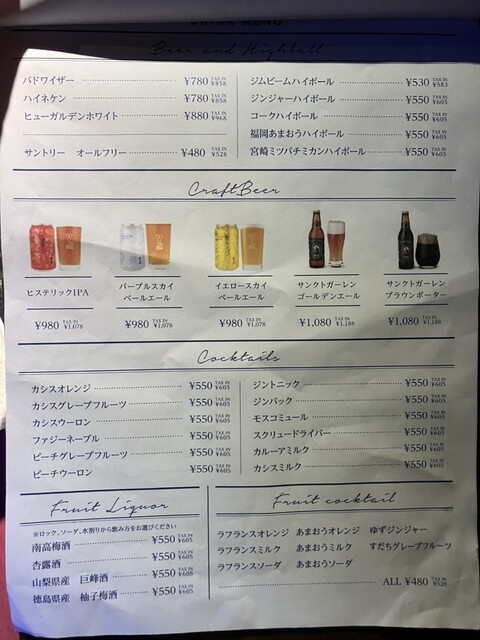 DRINK MENU
Beer and Highball
バドワイザー ¥780 TAX IN ¥858
ハイネケン ¥780 TAX IN ¥858
ヒューガルデンホワイト ¥880 TAX IN ¥968
サントリー オールフリー ¥480 TAX IN ¥528
ジムビームハイボール ¥530 TAX IN ¥583
ジンジャーハイボール ¥550 TAX IN ¥605
コークハイボール ¥550 TAX IN ¥605
福岡あまおうハイボール ¥550 TAX IN ¥605
宮崎ミツバチミカンハイボール ¥550 TAX IN ¥605
CraftBeer
ヒステリックIPA
¥980 TAX IN ¥1,078
パープルスカイ
ペールエール
¥980 TAX IN ¥1,078
イエロースカイ
ペールエール
¥980 TAX IN ¥1,078
サンクトガーレン
ゴールデンエール
¥1,080 TAX IN ¥1,188
サンクトガーレン
ブラウンポーター
¥1,080 TAX IN ¥1,188
Cocktails
カシスオレンジ ¥550 TAX IN ¥605
カシスグレープフルーツ ¥550 TAX IN ¥605
カシスウーロン ¥550 TAX IN ¥605
ファジーネーブル ¥550 TAX IN ¥605
ピーチグレープフルーツ ¥550 TAX IN ¥605
ピーチウーロン ¥550 TAX IN ¥605
ジントニック ¥550 TAX IN ¥605
ジンバック ¥550 TAX IN ¥605
モスコミュール ¥550 TAX IN ¥605
スクリュードライバー ¥550 TAX IN ¥605
カルーアミルク ¥550 TAX IN ¥605
カシスミルク ¥550 TAX IN ¥605
Fruit Liquor
※ロック、ソーダ、水割りから飲み方をお選びください
南高梅酒 ¥550 TAX IN ¥605
杏露酒 ¥550 TAX IN ¥605
山梨県産 巨峰酒 ¥550 TAX IN ¥605
徳島県産 柚子梅酒 ¥550 TAX IN ¥605
Fruit cocktail
ラフランスオレンジ あまおうオレンジ ゆずジンジャー
ラフランスミルク あまおうミルク すだちグレープフルーツ
ラフランスソーダ あまおうソーダ
ALL ¥480 TAX IN ¥528